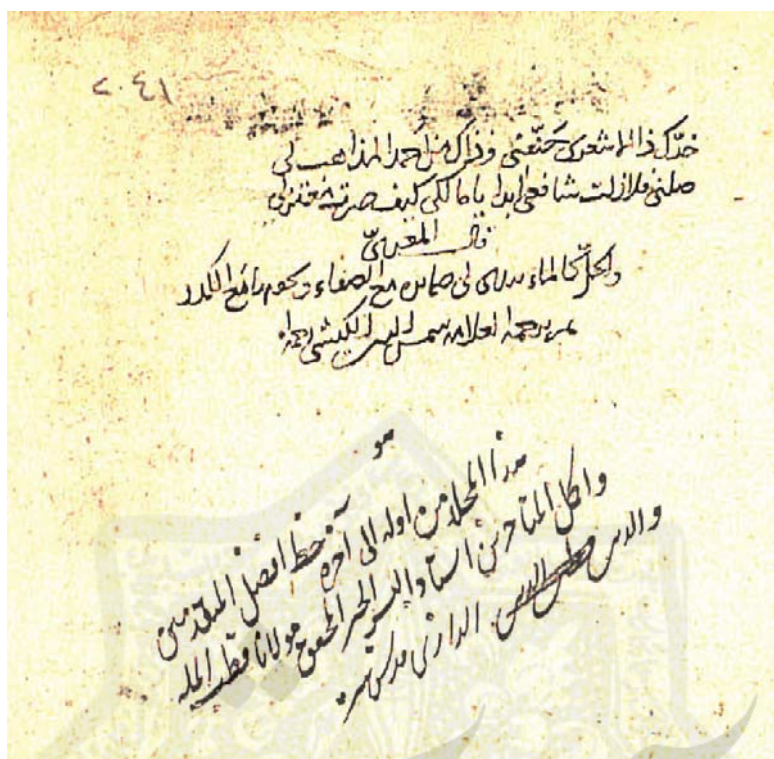 ٢٠٤١
خدّك ذا الاشعرى حنّفنى وذاك من احمد المذاهب لى
صلنى فلازلت شافعى ابدا يا مالكى كيف صرت معتزلى
قال المعرىّ
والخلّ كالماء يبدى لى ضمايره مع الصفاء ويخفيها مع الكدر
العلامه شمس الدين الكيشى رحمه الله
هو
هذا المجلد من اوله الى آخره خط افضل المتقدمين
واكمل المتاخرين استاد البشر الحبر المحقق مولانا قطب المله
والدين الرازى قدس سره